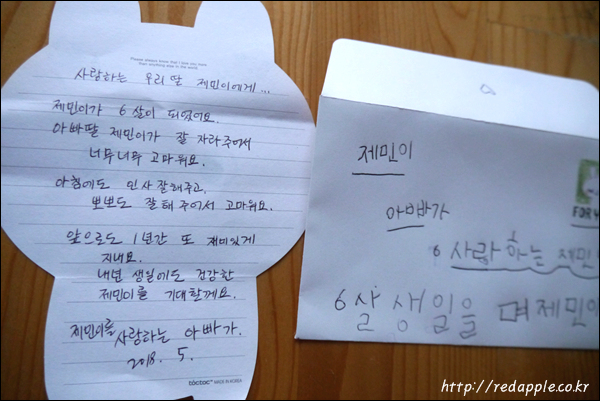 Please always know that I love you more
than anything else in the world.
사랑하는 우리 딸 제민이에게...
제민이가 6살이 되었어요.
아빠딸 제민이가 잘 자라주어서
너무너무 고마워요.
아침에도 인사 잘해주고,
뽀뽀도 잘해 주어서 고마워요.
앞으로도 1년간 또 재미있게
지내요.
내년 생일에도 건강한
제민이를 기대할께요.
제민이를 사랑하는 아빠가.
2018. 5.
toctoc MADE IN KOREA
제민이
아빠가
6 사랑하는 제민
6살 생일을 며제민이
FOR
http://redapple.co.kr